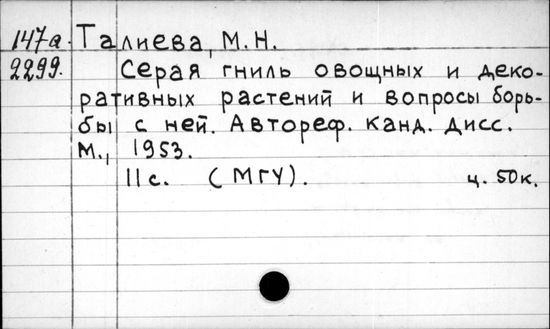 147а. Талиева, М.Н.
2299. Серая гниль овощных и деко-
ративных растений и вопросы борь-
бы с ней. Автореф. канд. дисс.
М., 1953.
11 с. (МГУ). ц. 50к.